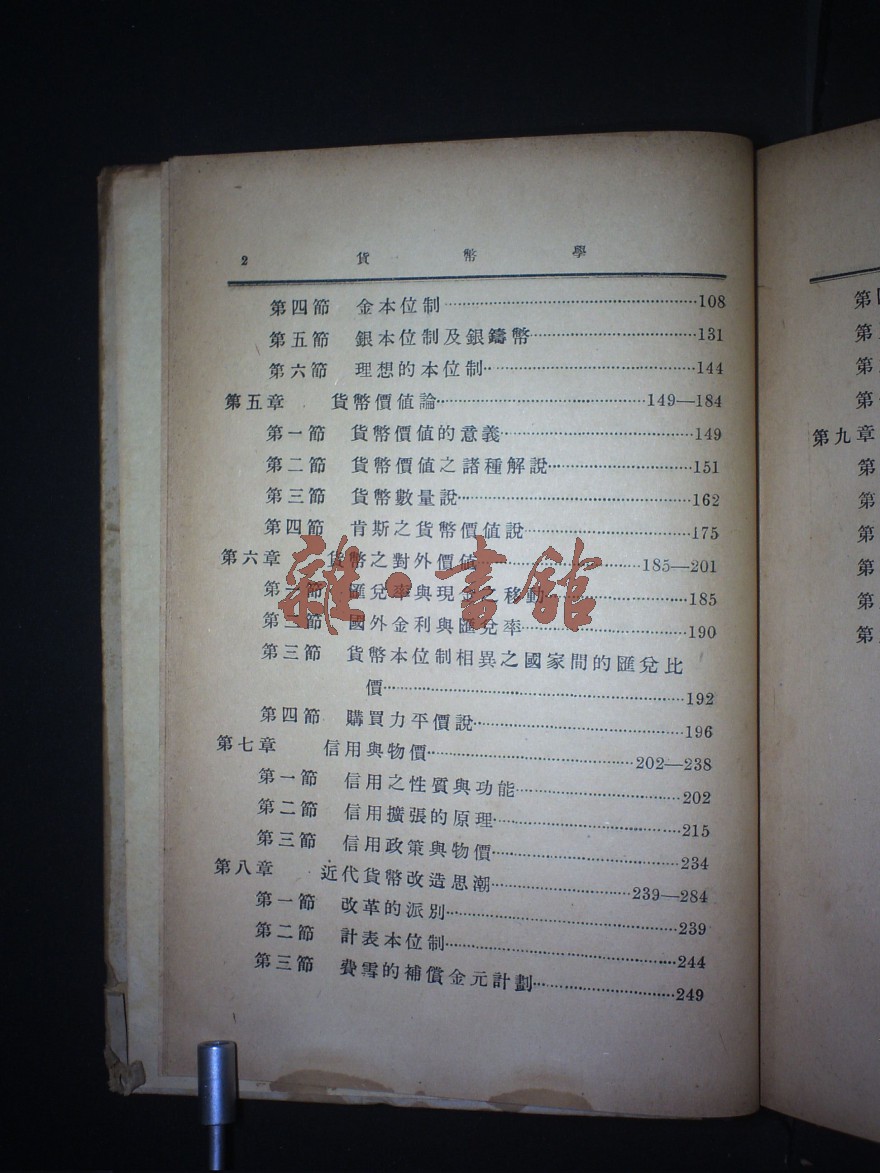 2 貨幣學
第四節 金本位制……108
第五節 銀本位制及銀鑄幣……131
第六節 理想的本位制……144
第五章 貨幣價值論……149—184
第一節 貨幣價值的意義……149
第二節 貨幣價值之諸種解說……151
第三節 貨幣數量說……162
第四節 肯斯之貨幣價值說……175
第六章 貨幣之對外價值……185—201
第一節 匯兌率與現金之移動……185
第二節 國外金利與匯兌率……190
第三節 貨幣本位制相異之國家間的匯兌比
價……192
第四節 購買力平價說……196
第七章 信用與物價……202—238
第一節 信用之性質與功能……202
第二節 信用擴張的原理……215
第三節 信用政策與物價……234
第八章 近代貨幣改造思潮……239—284
第一節 改革的派別……239
第二節 計表本位制……244
第三節 費雪的補償金元計劃……249
雜·書館
第
第
第
第
第九章
第
第
第
第
第
第